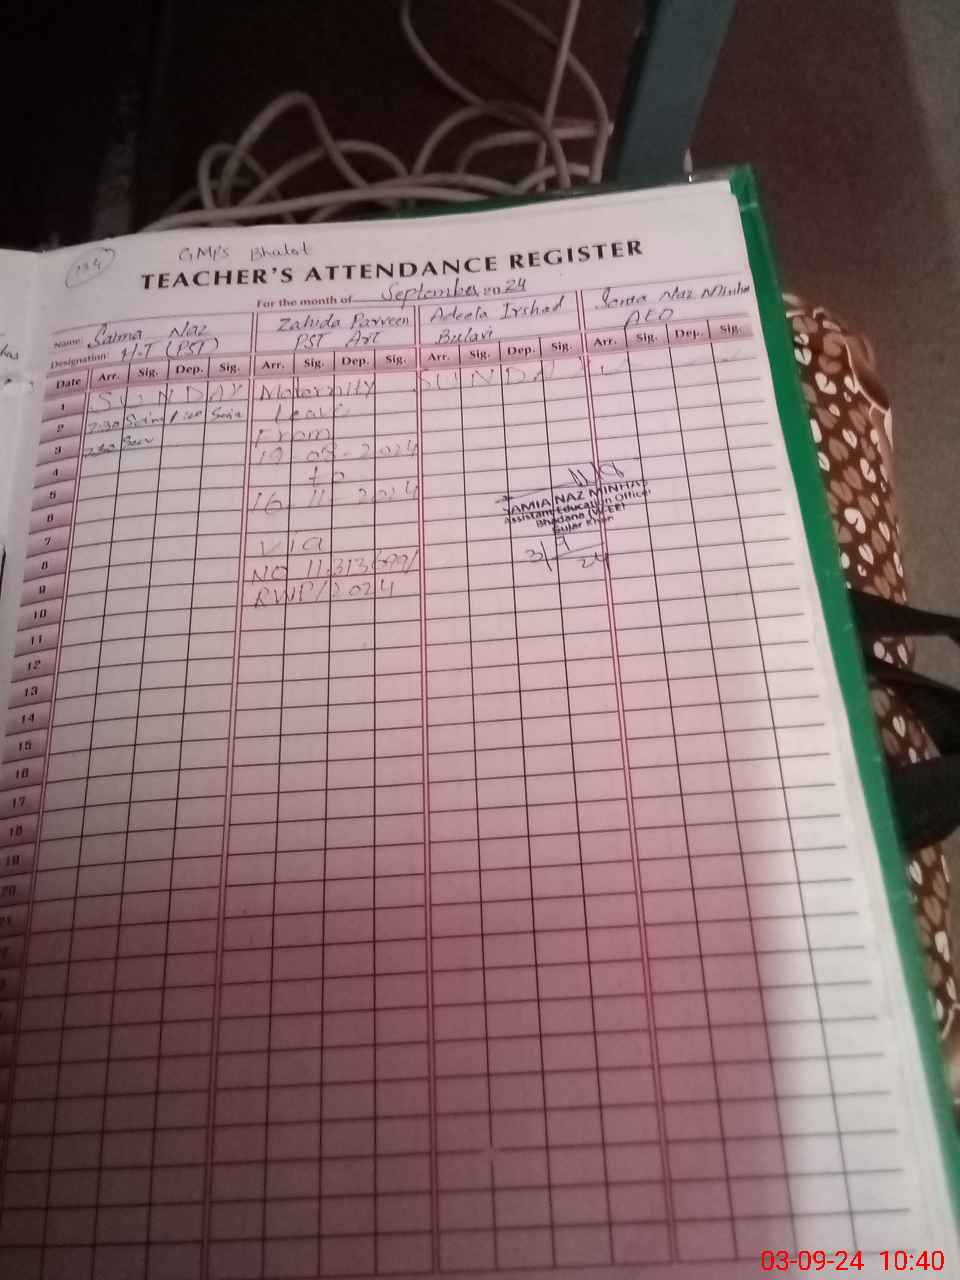 134
GMPS Bhalat
TEACHER'S ATTENDANCE REGISTER
For the month of September 2024
Name Salma Naz Zahida Parveen Adeela Irshad Samia Naz Minhas
Designation H-T (PST) PST Art Bulavi AEO
Date Arr. Sig. Dep. Sig. Arr. Sig. Dep. Sig. Arr. Sig. Dep. Sig. Arr. Sig. Dep. Sig.
1 SUNDAY Maternity SUNDAY
2 7:30 Leave
3 7:30 From
19-08-2024
4 to
5 16-11-2024
6
7 Via
8 NO 11313699/
9 RWP/2024
10
11
12
13
14
15
16
17
18
19
20
SAMIA NAZ MINHAS
Assistant Education Officer
Bhadana (W-EE)
Gujar Khan
3/9
24
03-09-24 10:40